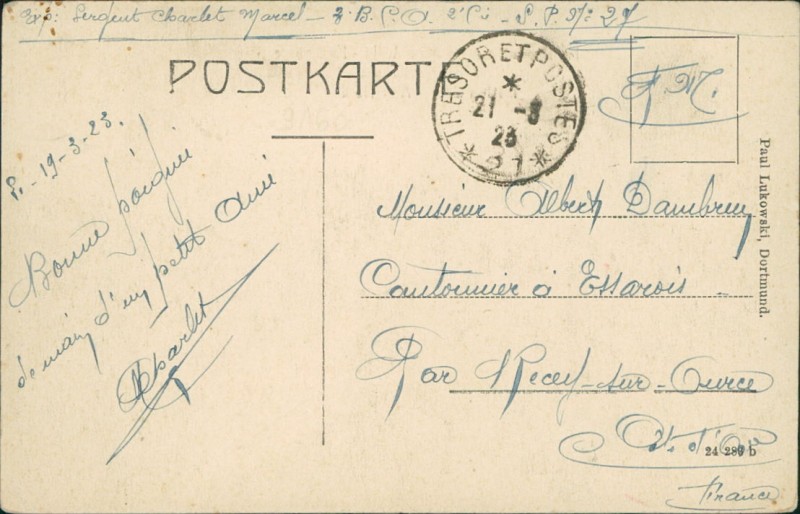 Exp: Sergent Charlet Marcel - B.C.A. 2e Cie - S.P. No: 27
POSTKARTE
TRESOR ET POSTES
21 -3
23
27
F M.
P.-19-3-23.
Bonne poignée
de main d'un petit Ami
Charlet
Monsieur Albert Dambrun
Cantonnier à Essarois
Par Recey-sur-Ource
Ct. d'Or
France
Paul Lukowski, Dortmund.
24 289 b